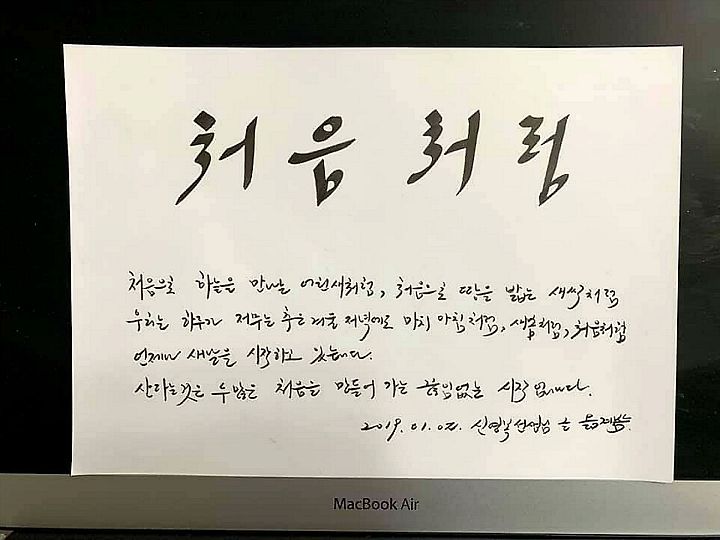 처음처럼
처음으로 하늘을 만나는 어린새처럼, 처음으로 땅을 밟는 새싹처럼
우리는 하루가 저무는 추운 겨울 저녁에도 마치 아침처럼, 새봄처럼, 처음처럼
언제나 새날을 시작하고 있습니다.
산다는것은 수많은 처음을 만들어 가는 끊임없는 시작입니다.
2019. 01. 02. 신영복선생님 글
MacBook Air